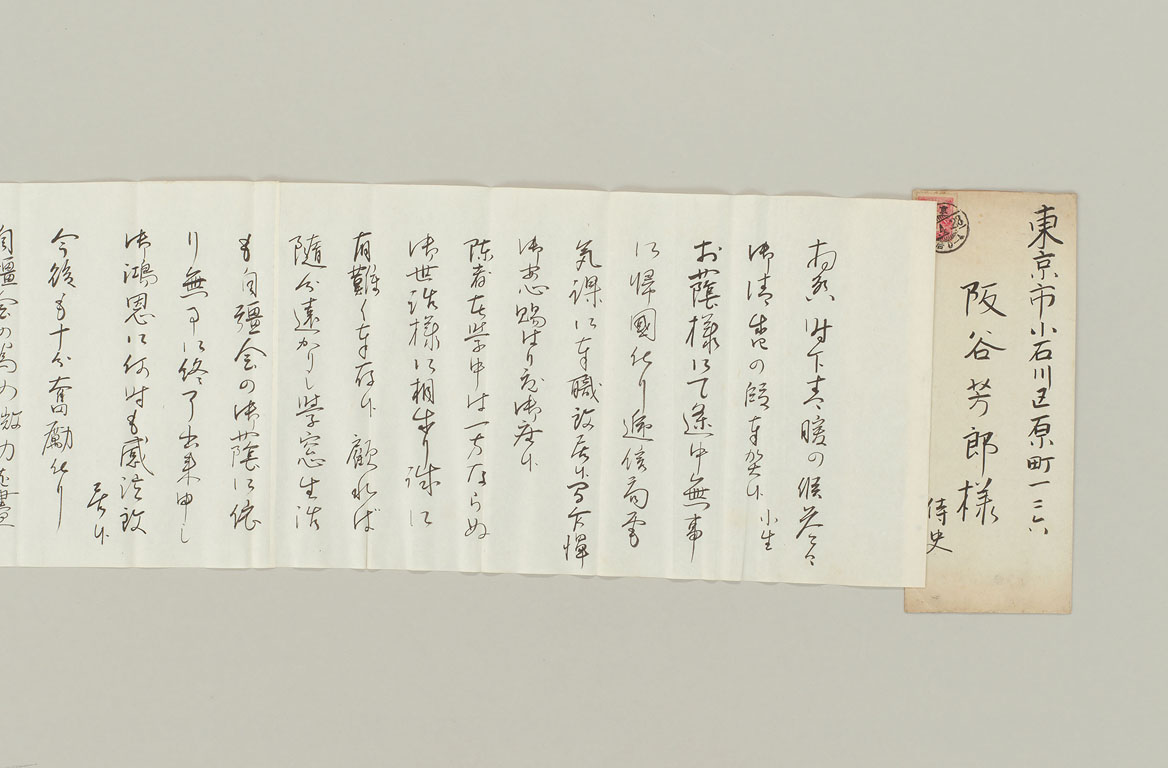 東京市小石川区原町一二六
阪谷芳郎様
侍史
拝啓 時下春暖の候益々
御清栄の段奉賀候 小生
お蔭様にて途中無事
に帰国仕り逓信局電
気課に奉職致居候間乍憚
御安心賜はり度御座候
陳者在学中は一方ならぬ
御世話様に相成り誠に
有難く奉存候 顧れば
随分遠かりし学窓生活
も自彊会の御蔭に依
り無事に終了出来申し
御鴻恩に何時も感泣致
居候
今後も十分奮励仕り
自彊会の為め微力を尽